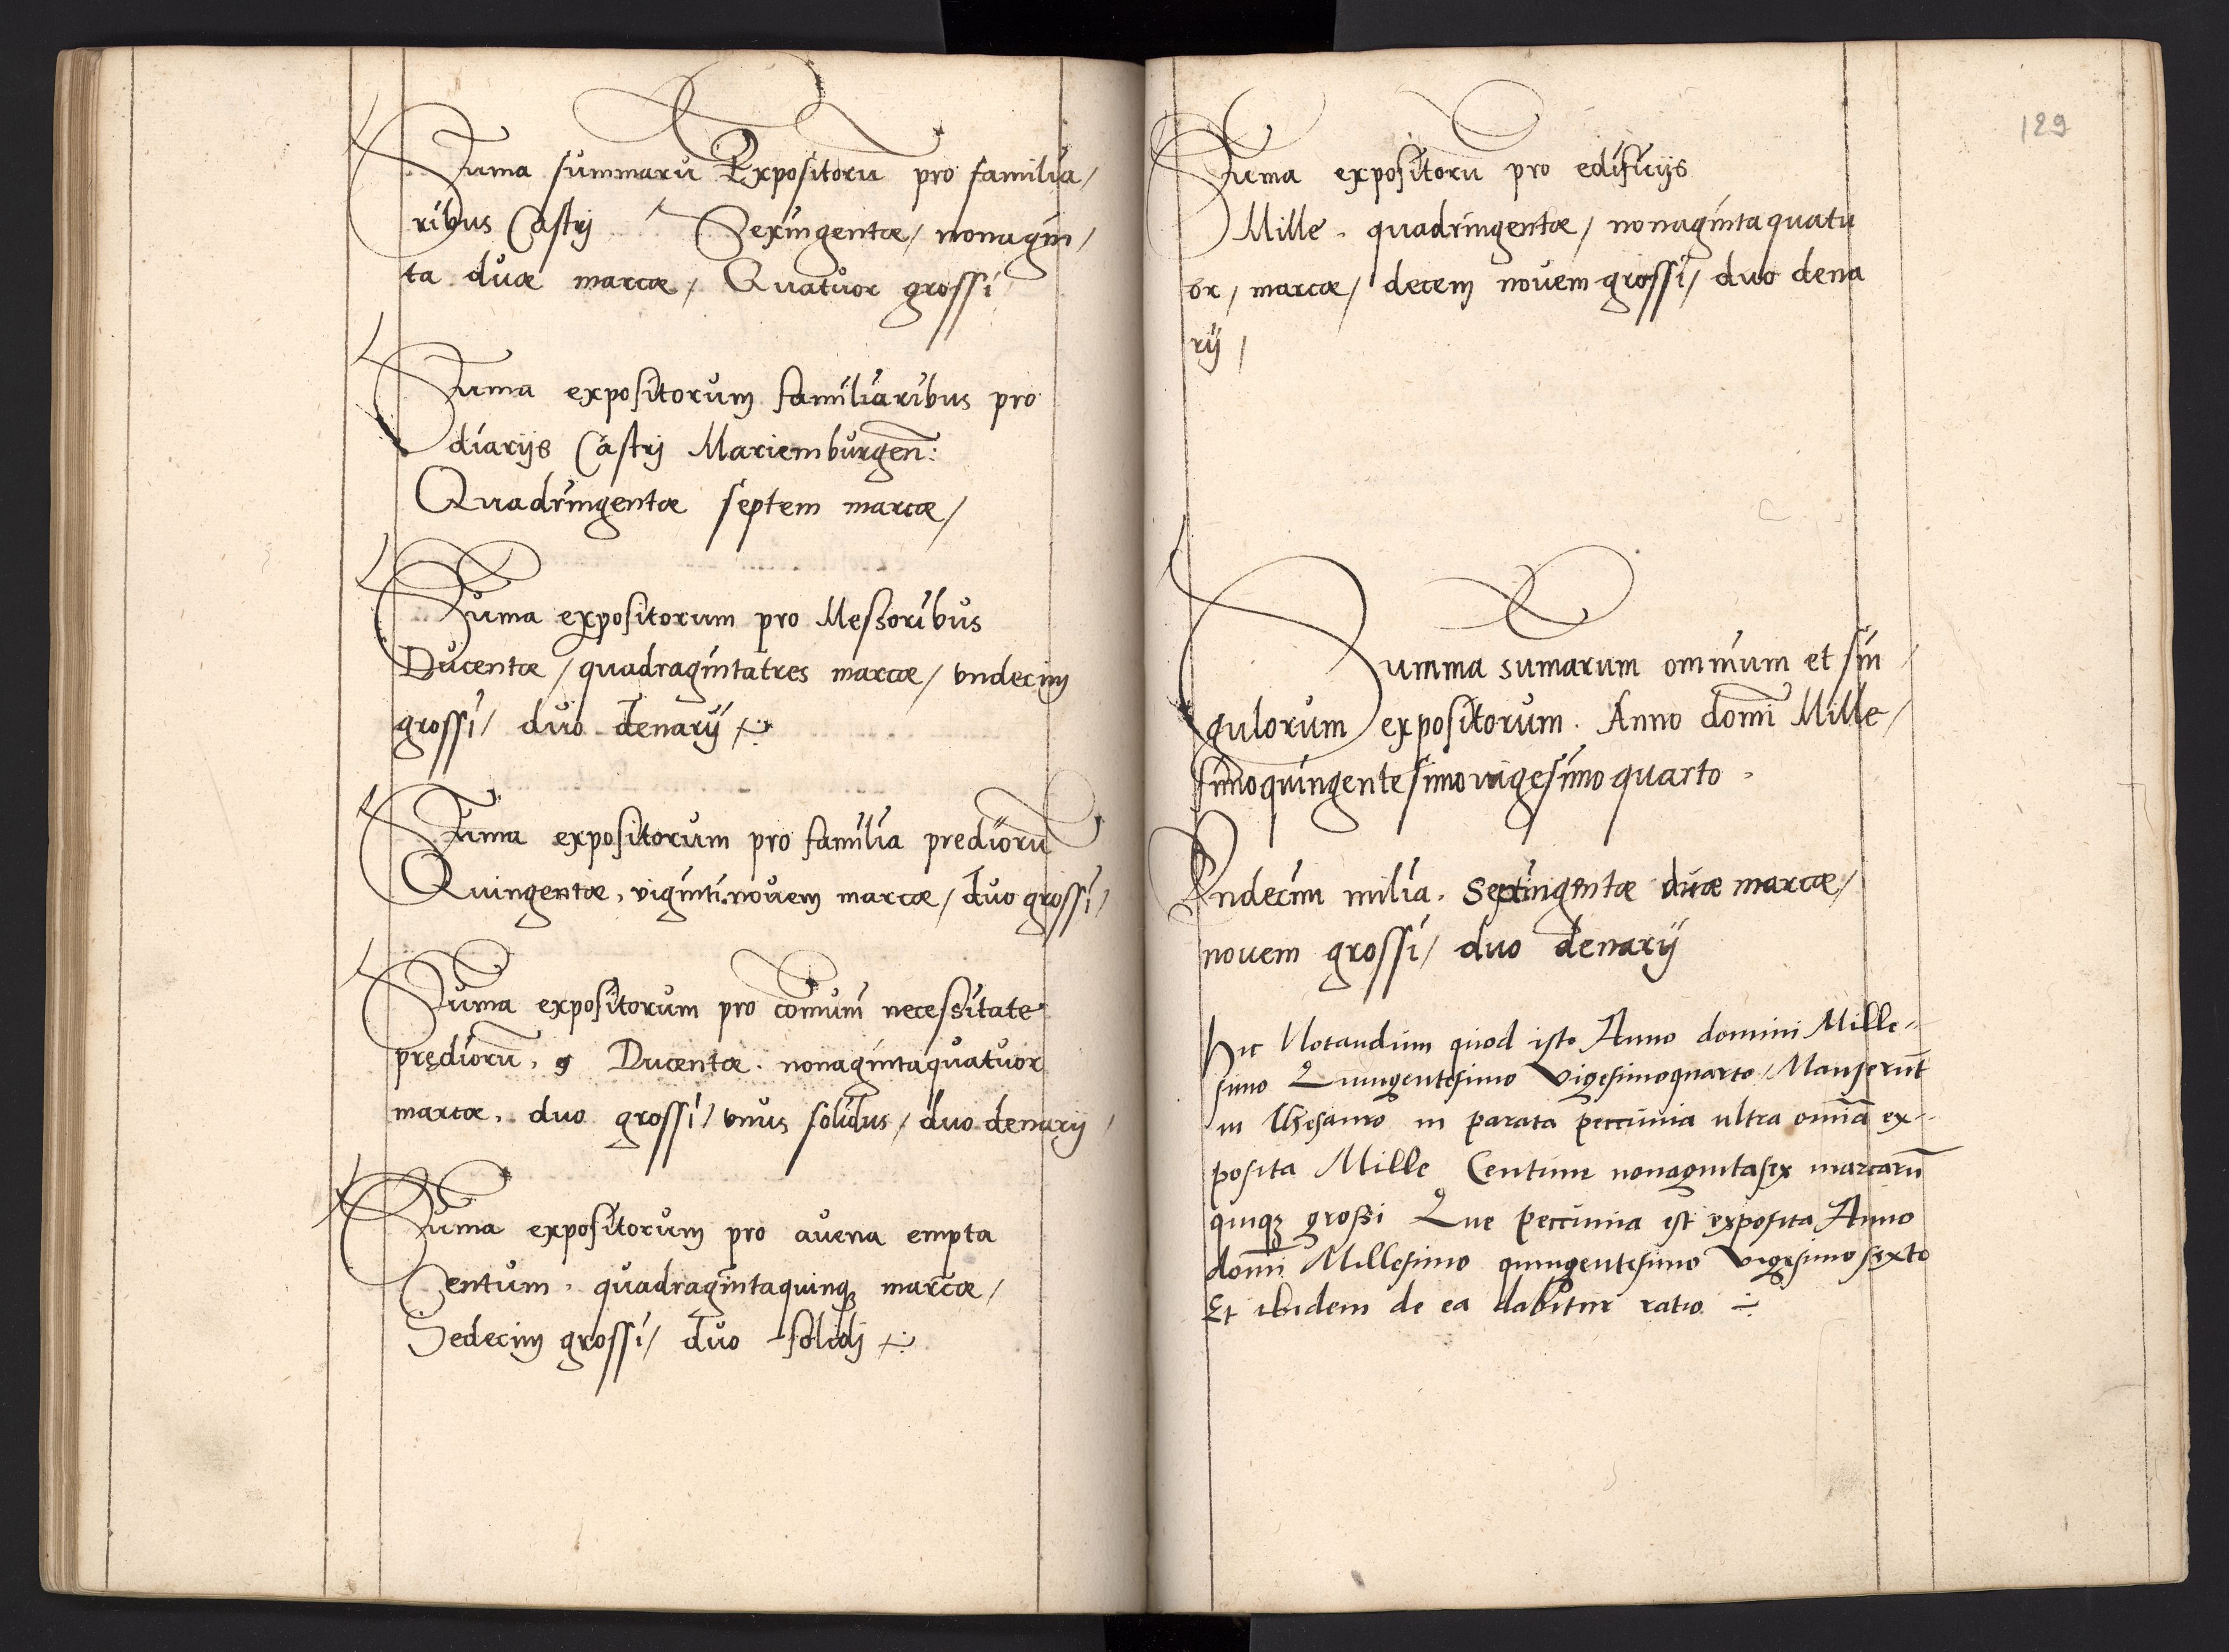 Suma summarũ Expositorũ pro familia/
ribus Castrj Sexingentæ/ nonagin/
ta duæ marcæ/ Quatuor grossi
Suma expositorum familiaribus pro
diarijs Castrj Mariemburgeñ:
Quadringentæ septem marcæ/
Suma expositorum pro Messoribus
Ducentæ/ quadragintatres marcæ/ vndecim
grossi/ duo denarij
Suma expositorum pro familia prediorũ
Quingentæ, viginti.novem marcæ/ duo grossi/
Suma expositorum pro comuni necessitate
prędiorũ, Ducentæ. nonagintaquatuor
marcæ, duo grossi/ vnus solidus/ duo denarij/
Suma expositorum pro auena empta
Centum, quadragintaquinqȝ marcæ/
Sedecim grossi/ duo solidj
129
Suma expositorũ pro edificijs
Mille, quadringentæ/ nonagintaquatu
or/ marcæ/ decem nouem grossi/ duo dena
rij/
Summa sumarum omnium et sin/
gulorum expositorum. Anno domĩ Mille/
simoquingentesimovigesimoquarto.
Vndecim milia, Sexingentæ duæ marcæ/
nouem grossi/ duo denarij
Hic Notandum quod isto Anno domini Mille-
simo Quingentesimo Vigesimoquarto/ Manserũt
in Thesauro in parata peccunia ultra omĩa ex-
posita Mille Centum nonagintasex marcarũ
quinqȝ grossi Que peccunia est exposita Anno
domĩ Millesimo quingentesimo Vigesimo sexto
Et ibidem de ea dabitur ratio